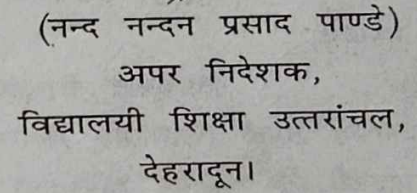 (नन्द नन्दन प्रसाद पाण्डे)
अपर निदेशक,
विद्यालयी शिक्षा उत्तरांचल,
देहरादून।